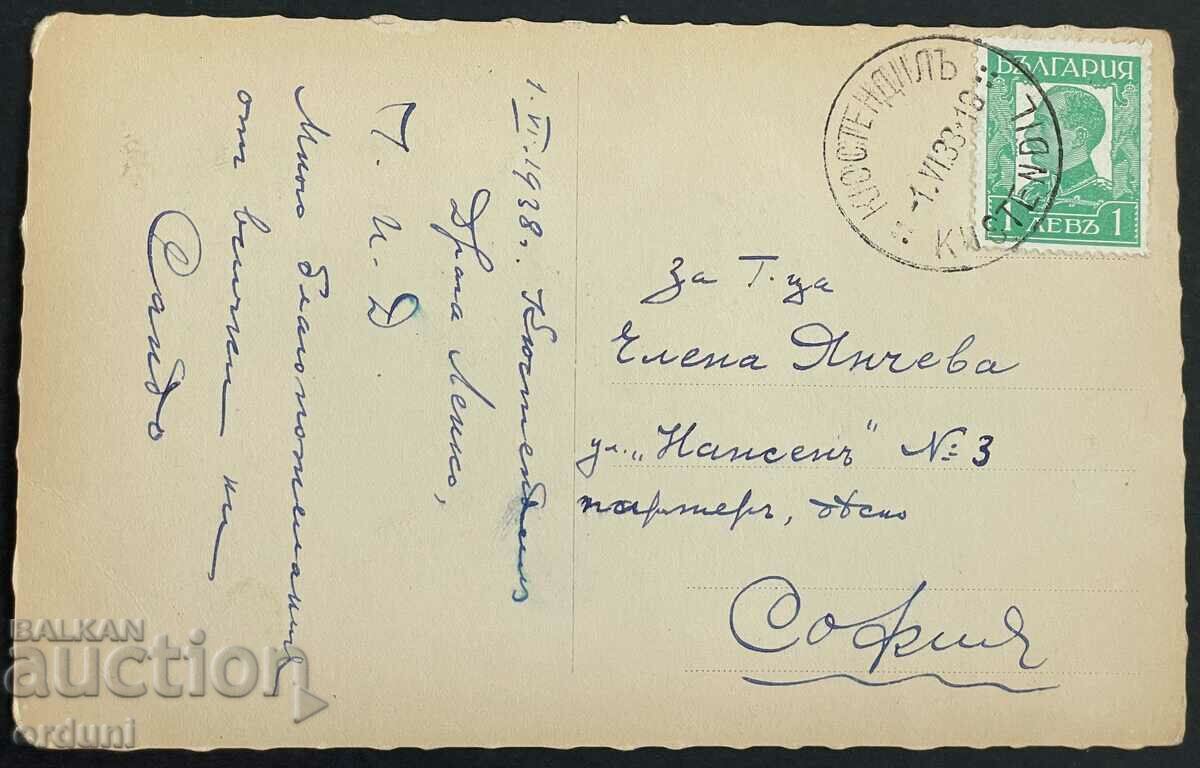 1.VI.1938г. Кюстендилъ
Драга Ленче,
Ч. И. Д
Много благопожелания
отъ всички ни
Сандо
КЮСТЕНДИЛЪ
-1.VI.38.18
KUSTENDIL
БЪЛГАРИЯ
1 ЛЕВЪ 1
За Г-ца
Елена Янчева
ул. „Нансенъ" №3
партеръ, дѣсно
София
BALKAN
auction
orduni